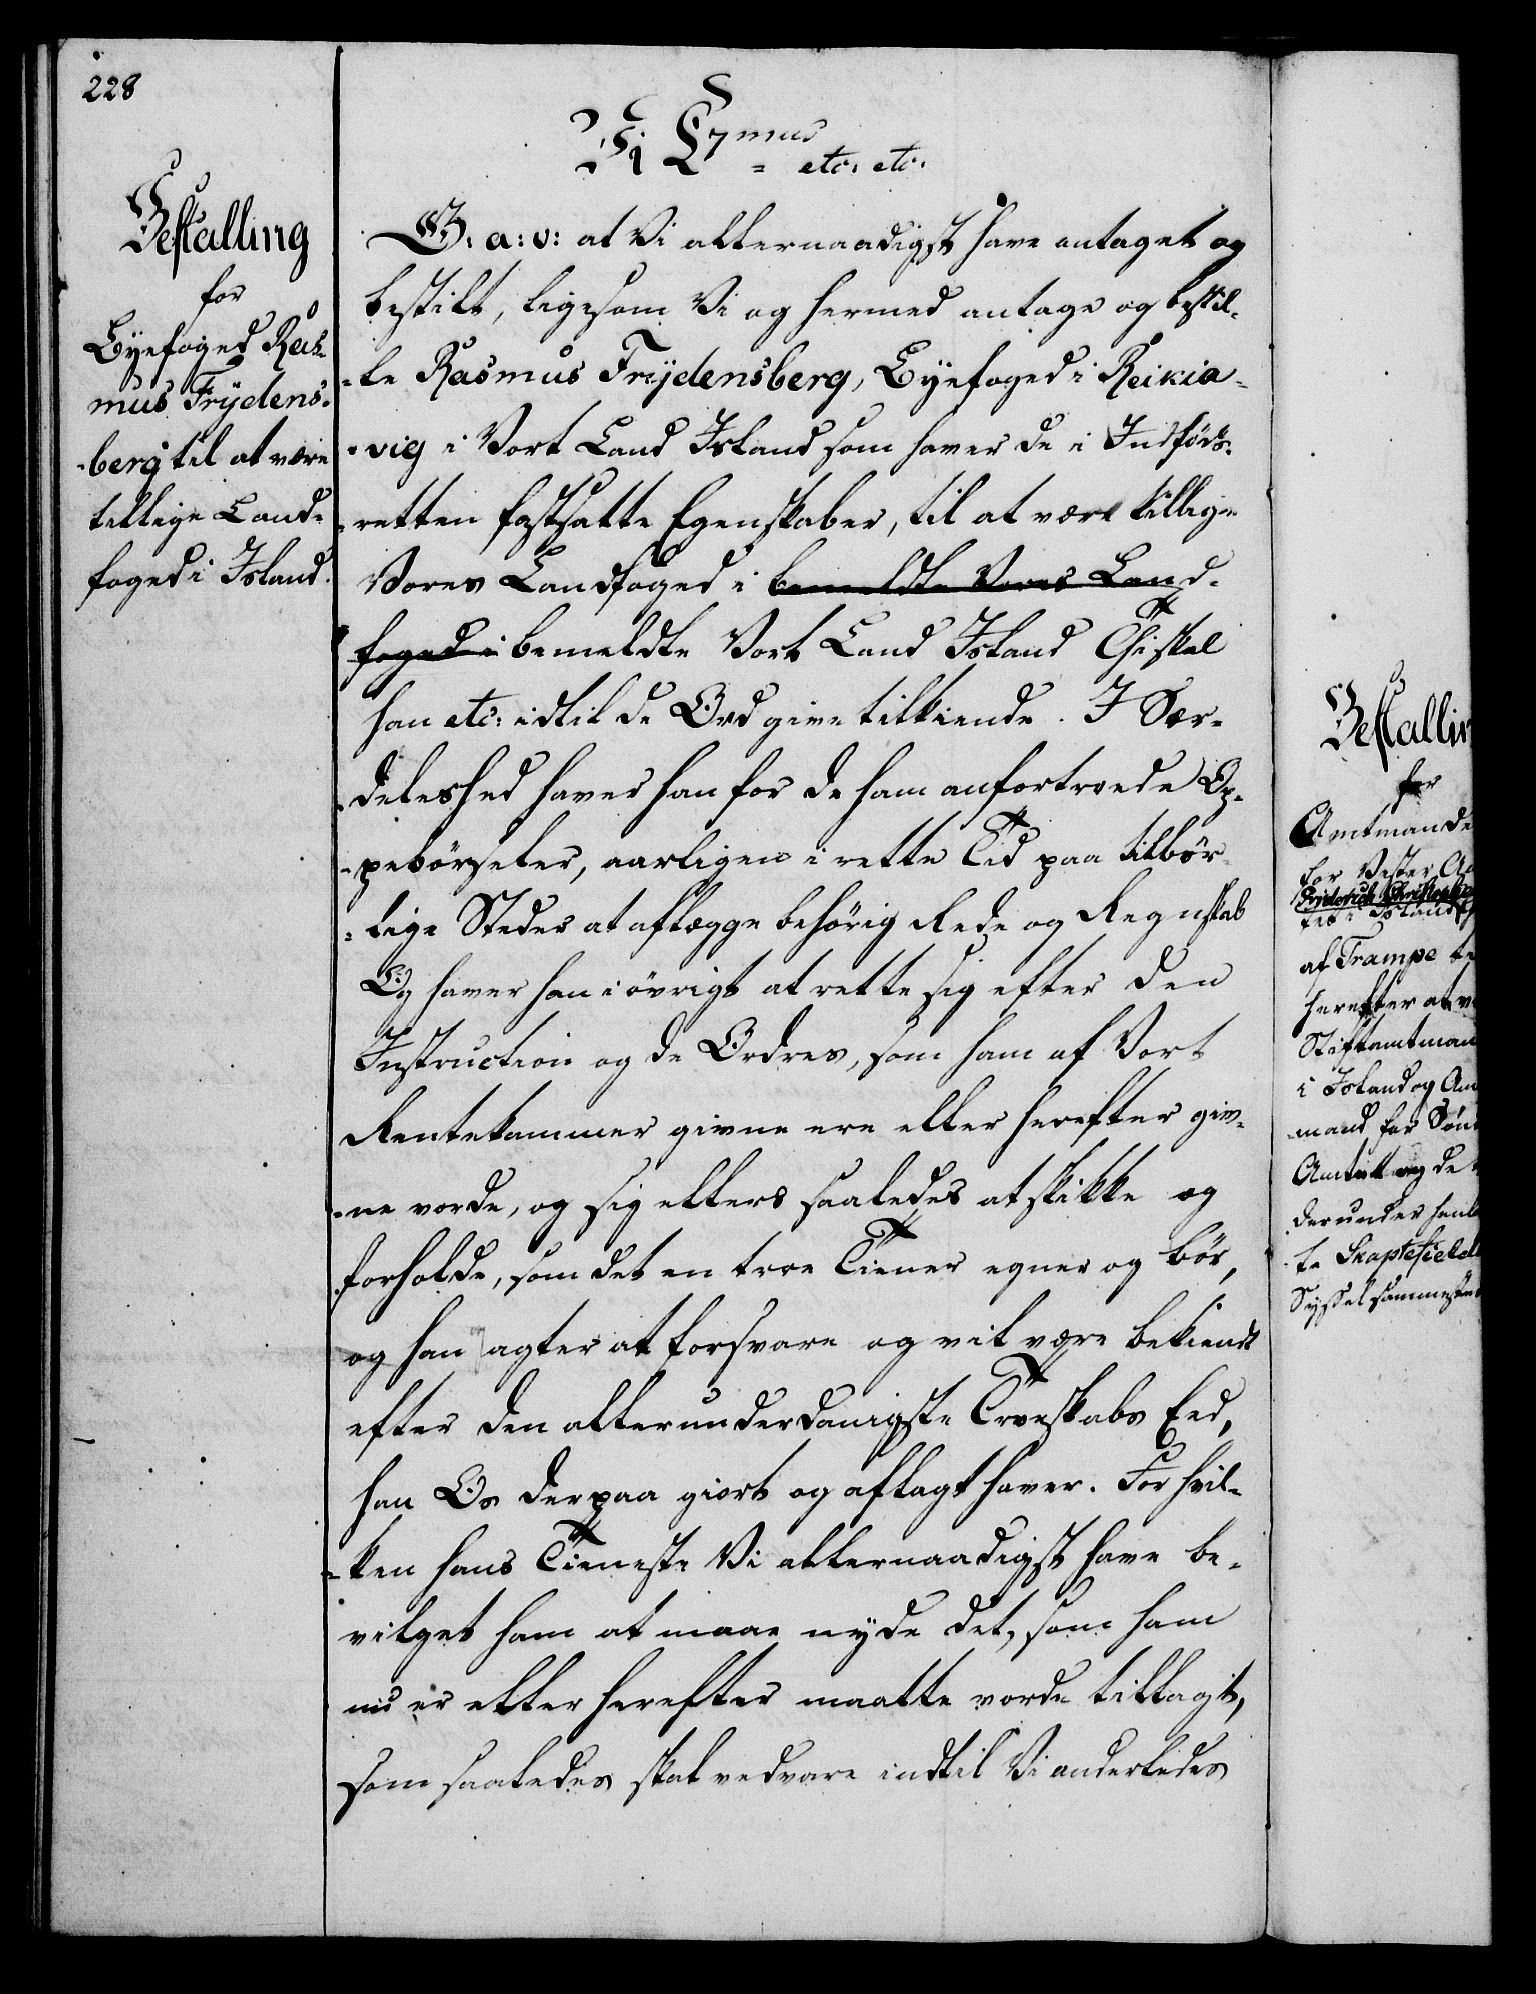 228
Bestalling
for
Byefoged Ras-
mus Frydens-
-berg til at være
tillige Land-
foged i Island.
Vi C7mus
= etc: etc:
G: a: v: at Vi allernaadigst have antaget og
bestilt, ligesom Vi og hermed antage og bestil-
-le Rasmus Frydensberg, Byefoged i Reikia-
-vig i Vort Land Island som haver de i Indføds-
-retten fastsatte Egenskaber, til at være tillige
Vores Landfoged i bemeldte Vores Land-
foged i bemeldte Vort Land Island Thi skal
han etc: idtil de Ord give tilkiende. I Sær-
-deleshed haver han for de ham anfortroede Op-
-pebørseler, aarligen i rette Tid paa tilbør-
-lige Steder at aflægge behørig Rede og Regnskab
Og haver han i øvrigt at rette sig efter den
Instruction og de Ordres, som ham af Vort
Rentekammer givne ere eller herefter giv-
-ne vorde, og sig ellers saaledes at skikke og
forholde, som det en troe Tiener egner og bør,
og han agter at forsvare og vil være bekiendt
efter den allerunderdanigste Troeskabs Eed,
han Os derpaa giort og aflagt haver. For hvil-
-ken hans Tieneste Vi allernaadigst have be-
vilget ham at maae nyde det, som ham
nu er eller herefter maatte vorde tillagt,
som saaledes skal vedvare indtil Vi anderledes
Bestallin
for
Amtmand
for Vester A
Friderich Christophe
tet i Island
af Trampe
herefter at v
Stiftamtman
i Island og Am
mand for Sønd
Amtet og de
derunder henl
te Skaptefield
Syssel sammesteds